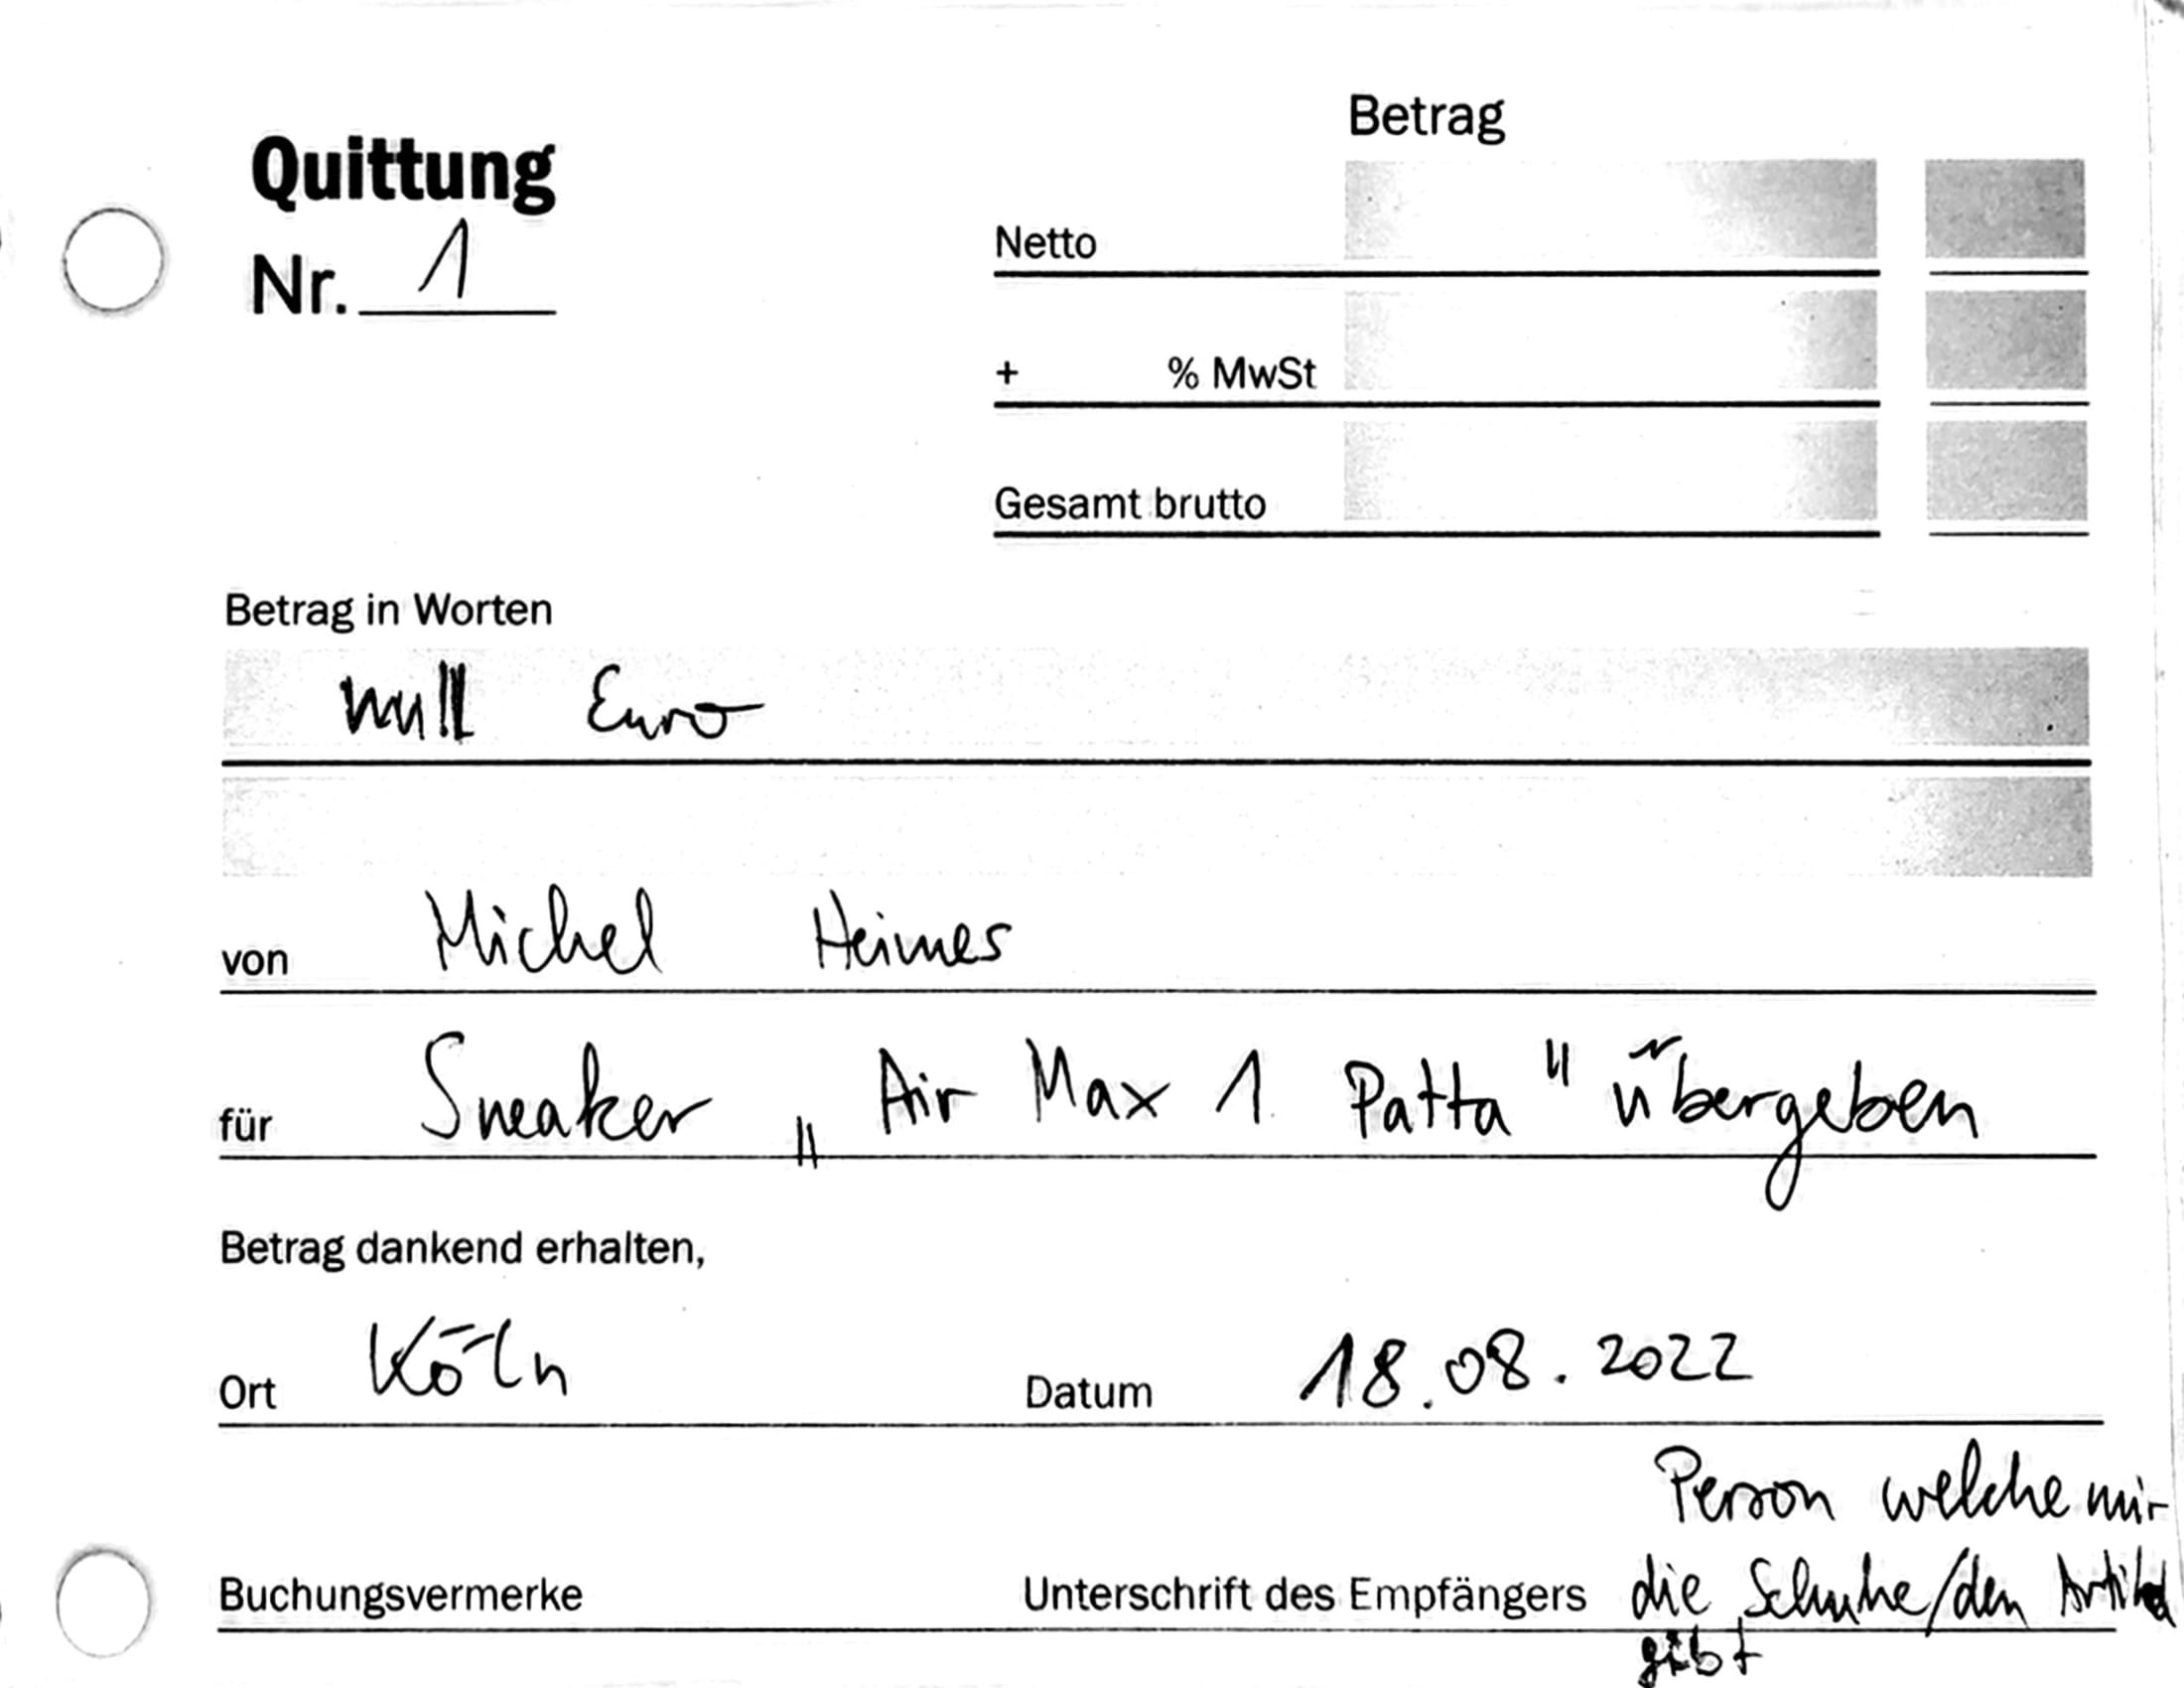 Betrag
Quittung
Nr. 1
Netto
+ % MwSt
Gesamt brutto
Betrag in Worten
null Euro
von Michel Heimes
für Sneaker „Air Max 1 Patta" übergeben
Betrag dankend erhalten,
Ort Köln Datum 18.08.2022
Person welche mir
Buchungsvermerke Unterschrift des Empfängers die Schuhe/den Artikel
gibt